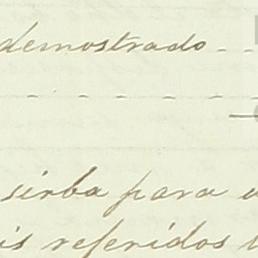 demostrado
sirba para
is referidos